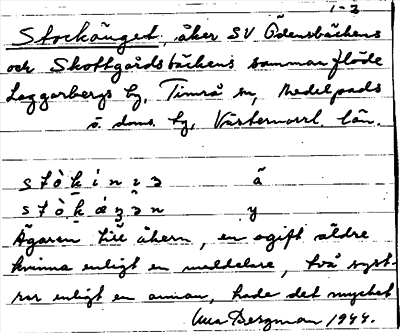 1-2
Stockänget, åker SV Ödensbäckens
och Skottgårdsbäckens sammanflöde
Laggarbergs by, Timrå sn, Medelpads
ö. doms. hg, Västernorrl. län.
ä
y
Ägaren till åkern, en ogift äldre
kvinna enligt en meddelare, två syst-
rar enligt en annan, hade det mycket
Bergman 1944.